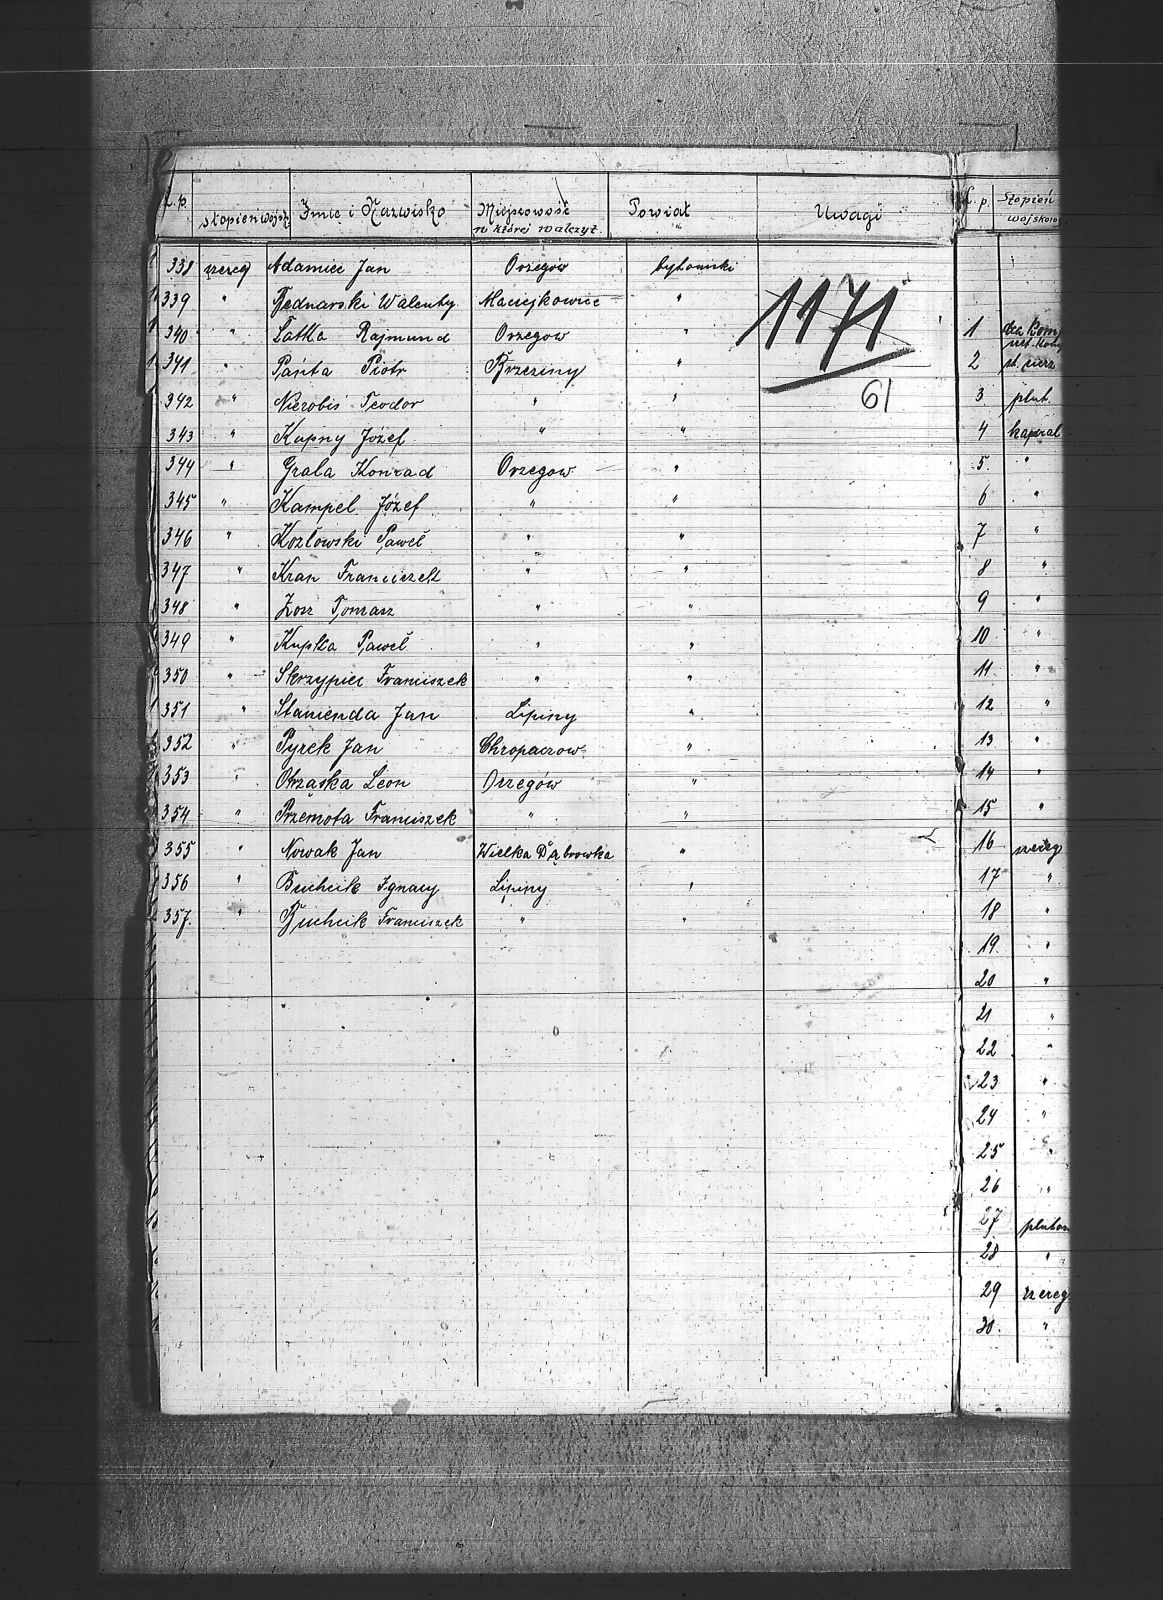 L.p. Stopień wojsk. Imię i Nazwisko Miejscowość w której walczył. Powiat Uwagi
338 szereg Adamiec Jan Orzegów bytomski
339 " Bednarski Walenty Maciejkowice "
340 " Łatka Rajmund Orzegow "
341 " Panta Piotr Brzeziny "
342 " Nierobiś Teodor " "
343 " Kupny Józef " "
344 " Grala Konrad Orzegow "
345 " Kampel Józef " "
346 " Kozłowski Paweł " "
347 " Kran Franciszek " "
348 " Zosz Tomasz " "
349 " Kupka Paweł " "
350 " Skrzypiec Franciszek " "
351 " Stanienda Jan Lipiny "
352 " Pyrek Jan Chropaczow "
353 " Otrząska Leon Orzegów "
354 " Przemota Franciszek " "
355 " Nowak Jan Wielka Dąbrowka "
356 " Buchcik Ignacy Lipiny "
357. " Buchcik Franciszek " "
1171
61
L. p. Stopień wojskow
1
2 st. sierż
3 plut.
4 kapral
5. "
6 "
7 "
8 "
9 "
10 "
11. "
12 "
13 "
14 "
15 "
16 szereg
17 "
18 "
19. "
20 "
21 "
22 "
23 "
24 "
25 "
26 "
27 pluton
28 "
29 szereg
30. "